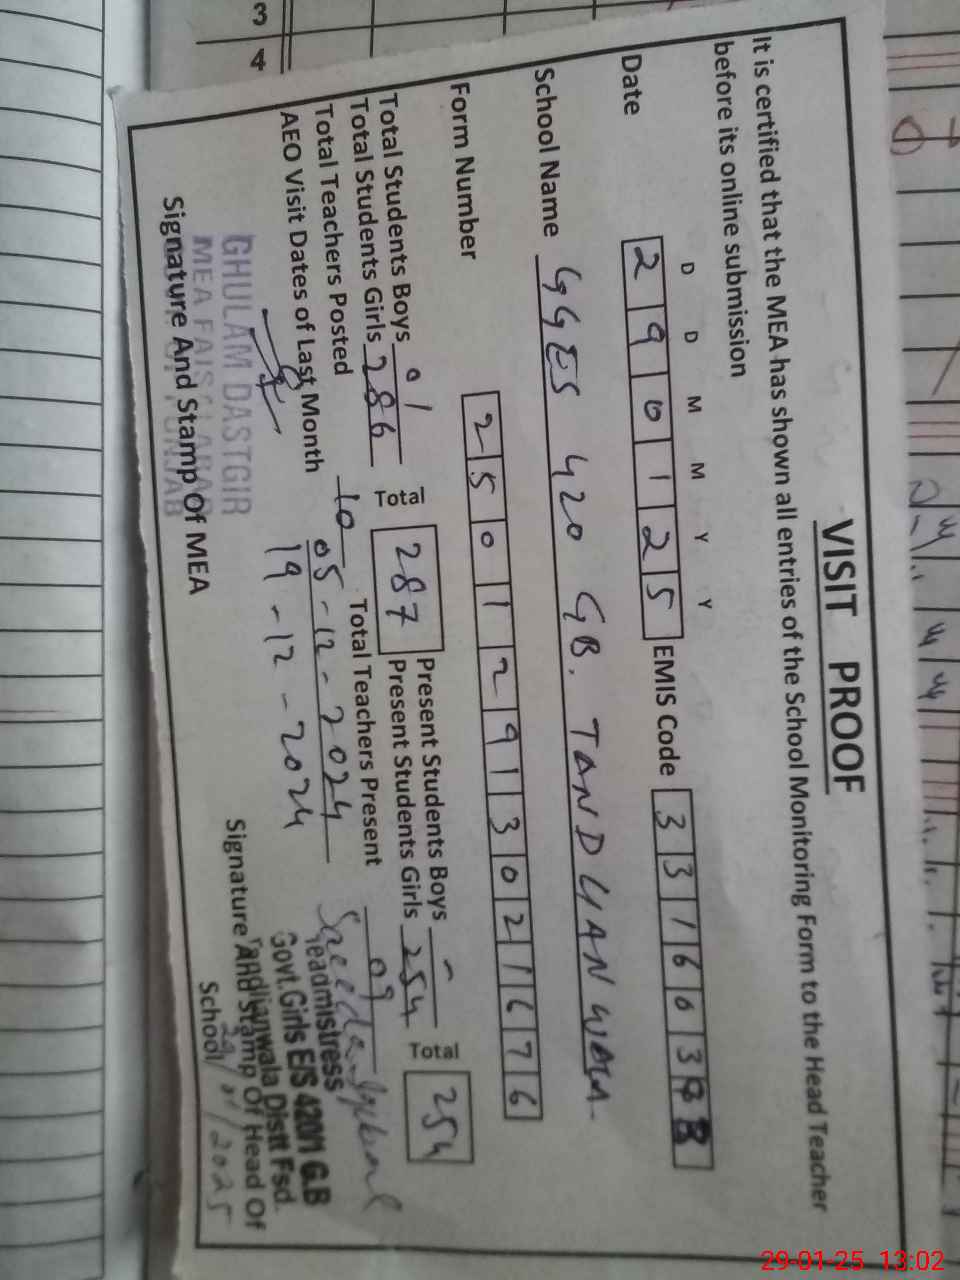 VISIT PROOF
It is certified that the MEA has shown all entries of the School Monitoring Form to the Head Teacher
before its online submission
D D M M Y Y
Date 2 9 0 1 2 5 EMIS Code 3 3 1 6 0 3
School Name GGES 420 GB. TANDLIANWALA.
Form Number 2 5 0 1 2 9 1 3 0 2 1 6 7 6
Total Students Boys 01 Present Students Boys -
Total Students Girls 286 Total 287 Present Students Girls 254 Total 254
Total Teachers Posted 10 Total Teachers Present 09
AEO Visit Dates of Last Month 05-12-2024
19-12-2024
GHULAM DASTGIR
MEA FAISALABAD
PUNJAB
Signature And Stamp Of MEA
Headmistress
Govt. Girls E/S 420/1 G.B
Tandlianwala Distt Fsd.
Signature And Stamp Of Head Of
School
29/01/2025
3
4
29-01-25 13:02